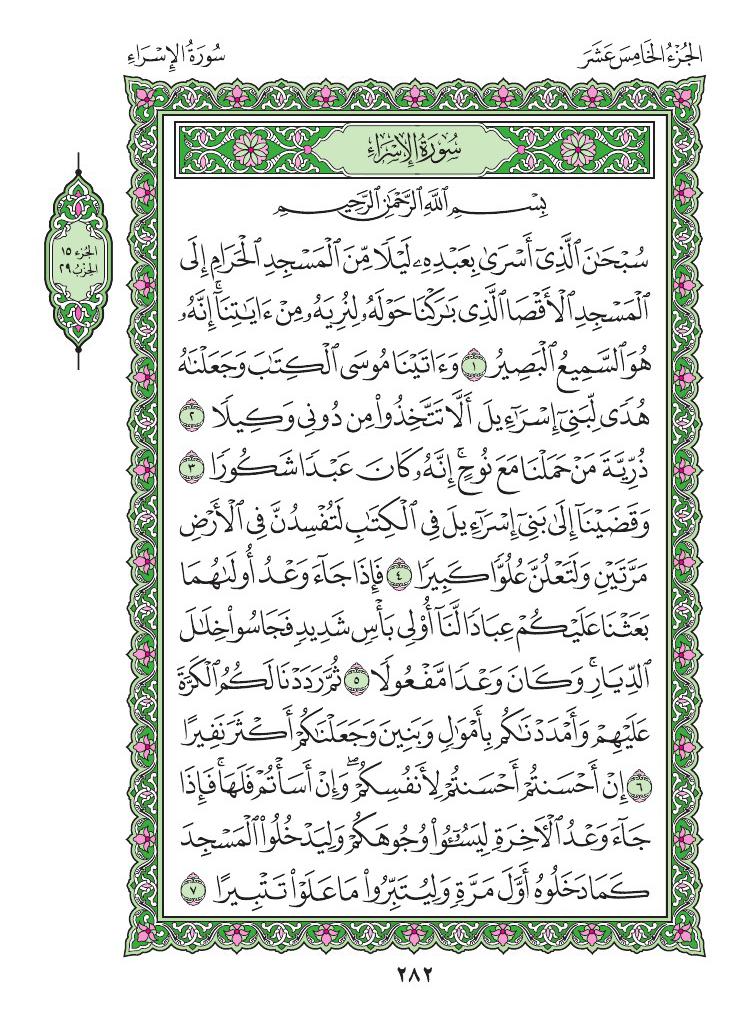 الجُزْءُ الخَامِسَ عَشَرَ
سُورَةُ الإِسْرَاءِ
سُورَةُ الإِسْرَاءِ
الجزء ١٥
الحزب ٢٩
بِسْمِ ٱللَّهِ ٱلرَّحْمَٰنِ ٱلرَّحِيمِ
سُبْحَٰنَ ٱلَّذِىٓ أَسْرَىٰ بِعَبْدِهِۦ لَيْلًا مِّنَ ٱلْمَسْجِدِ ٱلْحَرَامِ إِلَى
ٱلْمَسْجِدِ ٱلْأَقْصَا ٱلَّذِى بَٰرَكْنَا حَوْلَهُۥ لِنُرِيَهُۥ مِنْ ءَايَٰتِنَآ ۚ إِنَّهُۥ
هُوَ ٱلسَّمِيعُ ٱلْبَصِيرُ ١ وَءَاتَيْنَا مُوسَى ٱلْكِتَٰبَ وَجَعَلْنَٰهُ
هُدًى لِّبَنِىٓ إِسْرَٰٓءِيلَ أَلَّا تَتَّخِذُوا۟ مِن دُونِى وَكِيلًا ٢
ذُرِّيَّةَ مَنْ حَمَلْنَا مَعَ نُوحٍ ۚ إِنَّهُۥ كَانَ عَبْدًا شَكُورًا ٣
وَقَضَيْنَآ إِلَىٰ بَنِىٓ إِسْرَٰٓءِيلَ فِى ٱلْكِتَٰبِ لَتُفْسِدُنَّ فِى ٱلْأَرْضِ
مَرَّتَيْنِ وَلَتَعْلُنَّ عُلُوًّا كَبِيرًا ٤ فَإِذَا جَآءَ وَعْدُ أُولَىٰهُمَا
بَعَثْنَا عَلَيْكُمْ عِبَادًا لَّنَآ أُو۟لِى بَأْسٍ شَدِيدٍ فَجَاسُوا۟ خِلَٰلَ
ٱلدِّيَارِ ۚ وَكَانَ وَعْدًا مَّفْعُولًا ٥ ثُمَّ رَدَدْنَا لَكُمُ ٱلْكَرَّةَ
عَلَيْهِمْ وَأَمْدَدْنَٰكُم بِأَمْوَٰلٍ وَبَنِينَ وَجَعَلْنَٰكُمْ أَكْثَرَ نَفِيرًا
٦ إِنْ أَحْسَنتُمْ أَحْسَنتُمْ لِأَنفُسِكُمْ ۖ وَإِنْ أَسَأْتُمْ فَلَهَا ۚ فَإِذَا
جَآءَ وَعْدُ ٱلْءَاخِرَةِ لِيَسُۥٓـُٔوا۟ وُجُوهَكُمْ وَلِيَدْخُلُوا۟ ٱلْمَسْجِدَ
كَمَا دَخَلُوهُ أَوَّلَ مَرَّةٍ وَلِيُتَبِّرُوا۟ مَا عَلَوْا۟ تَتْبِيرًا ٧
٢٨٢